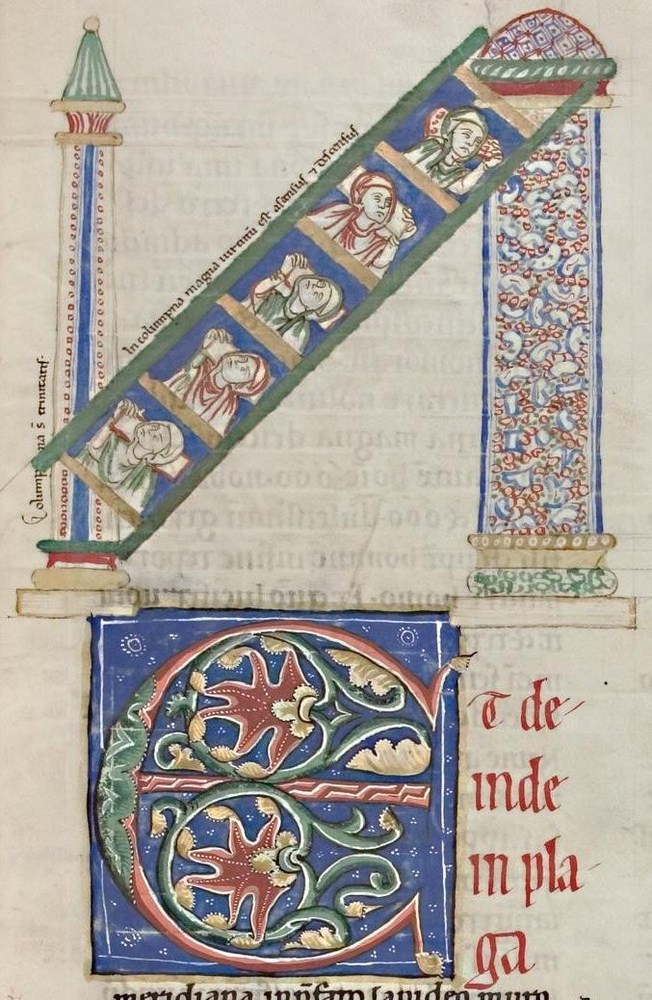 Columpna s̄ trinitatis.
In columpna magna uirtutū est ascensus ⁊ descensus
Et de
inde
in pla
ga
meridiana in p̄fato lapideo muro